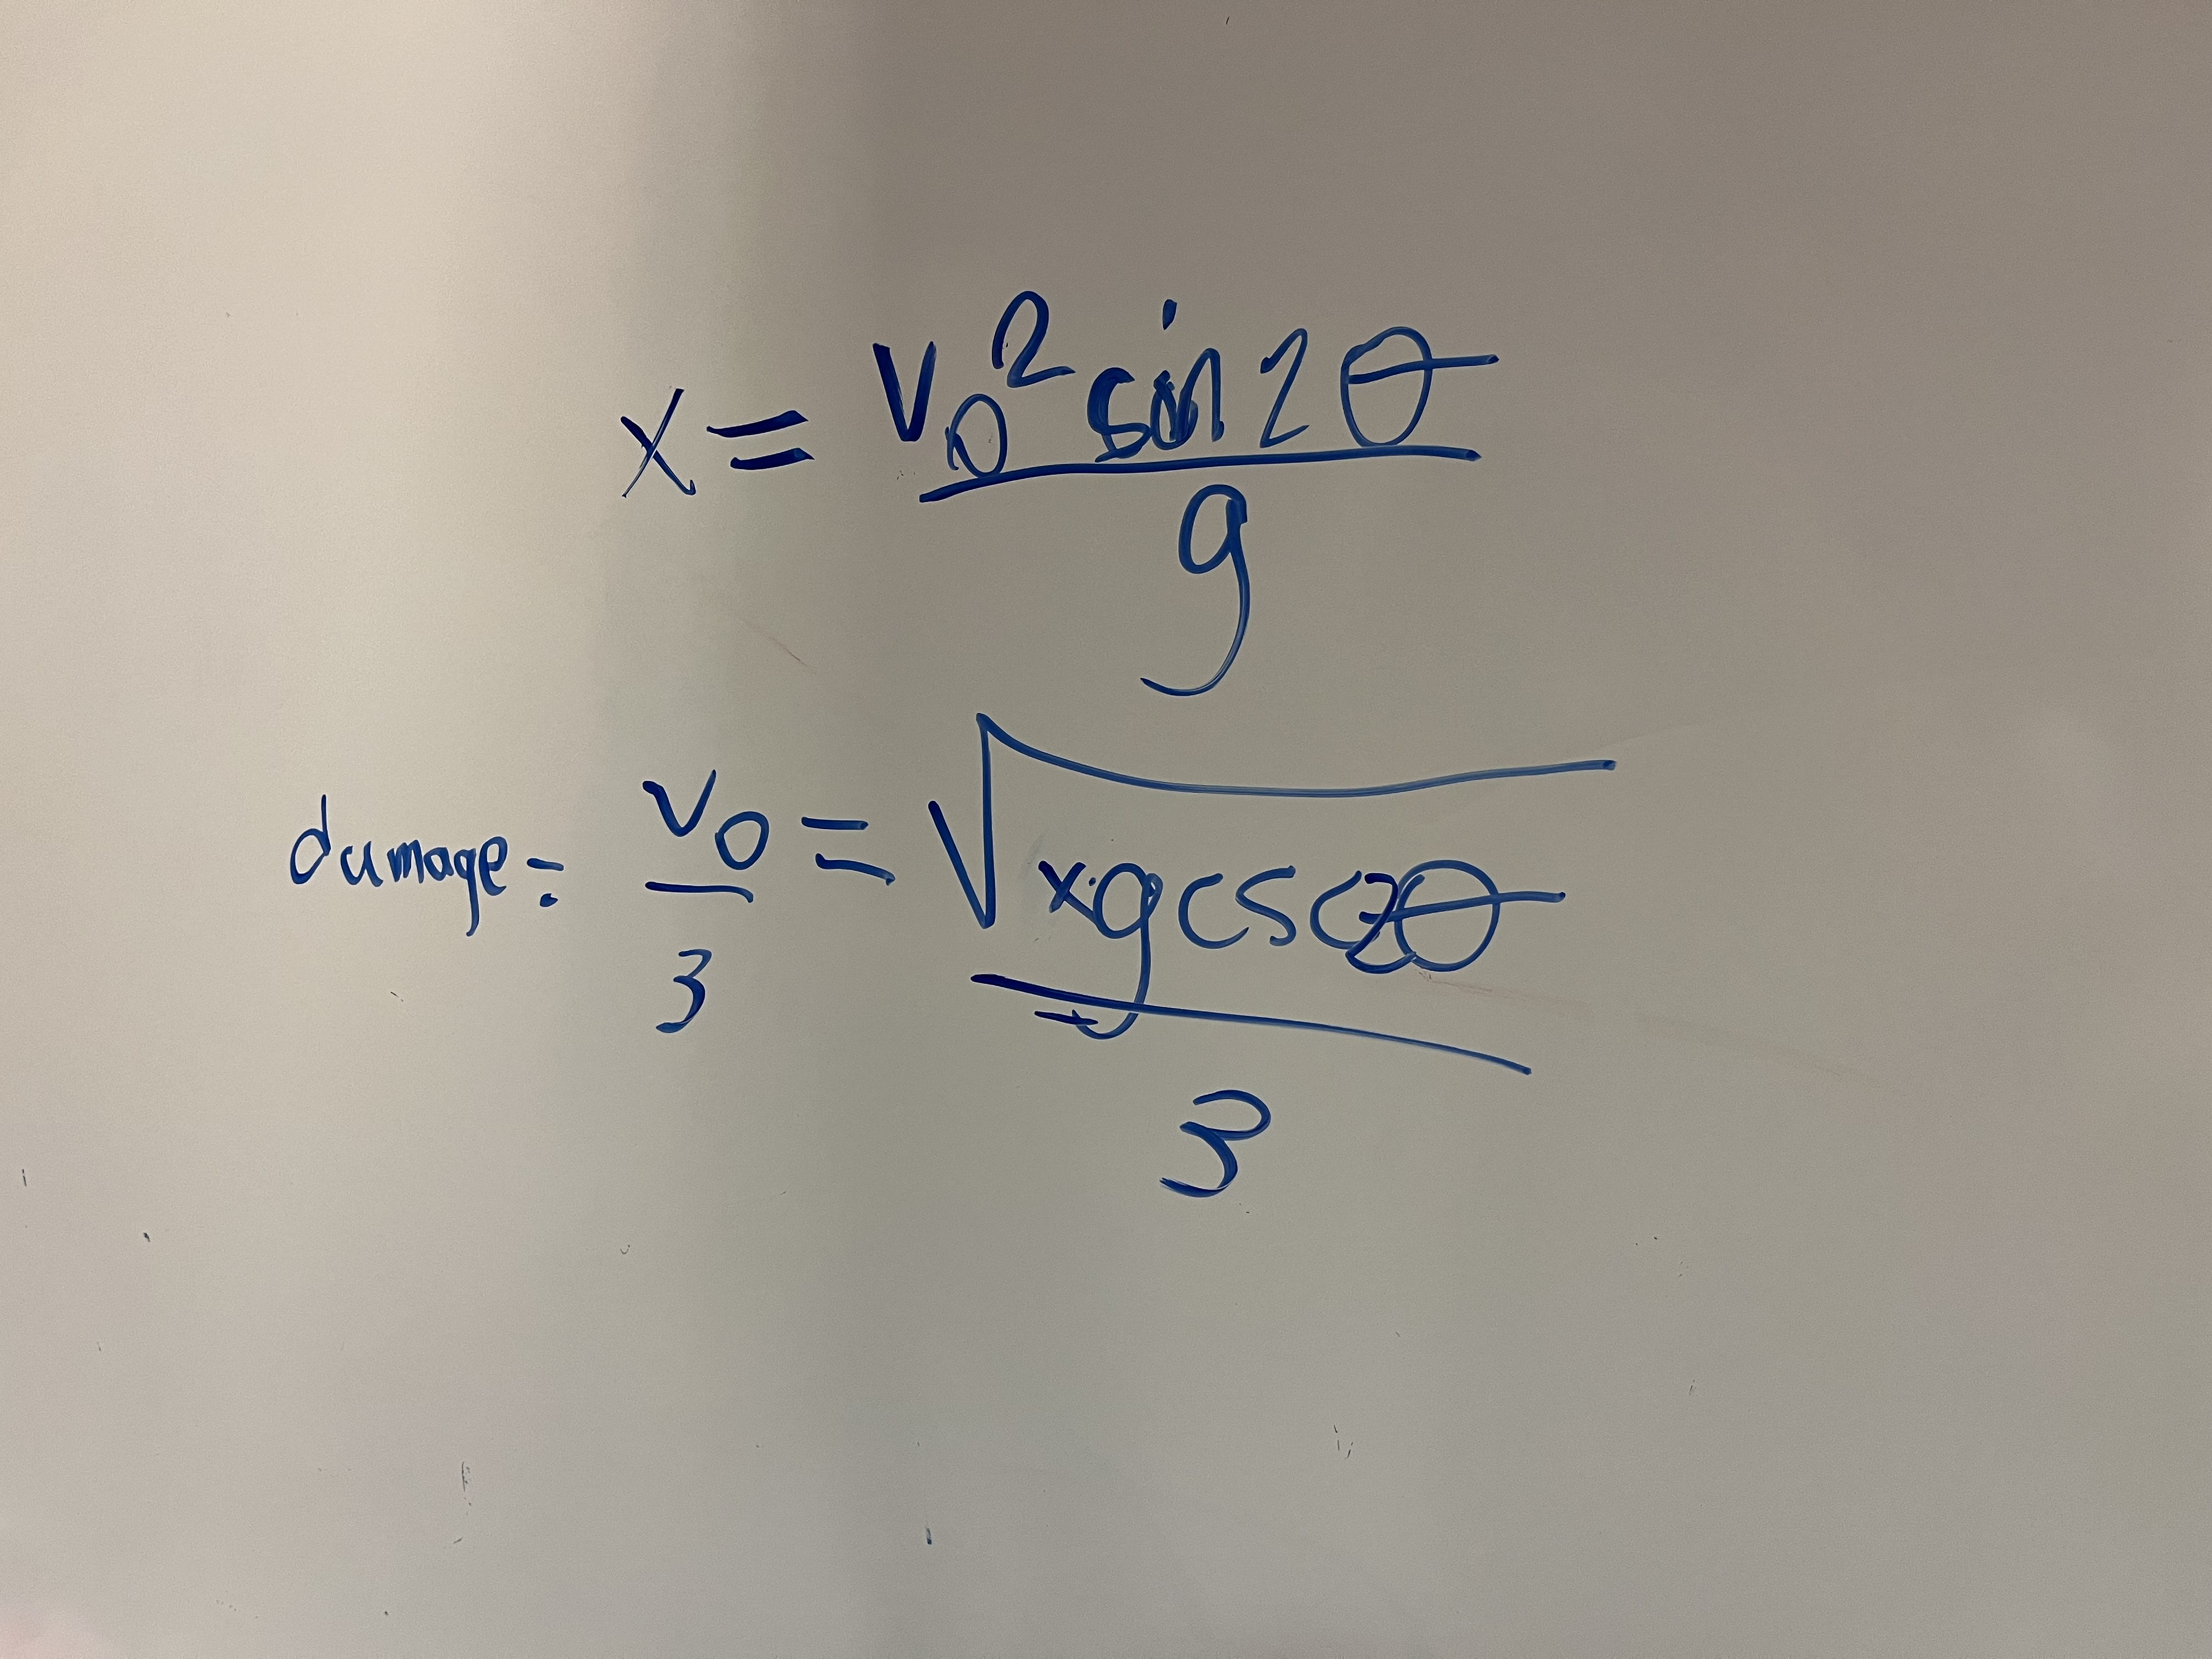 x = v₀² sin 2θ / g
damage = v₀ / 3 = √(x·g csc 2θ) / 3